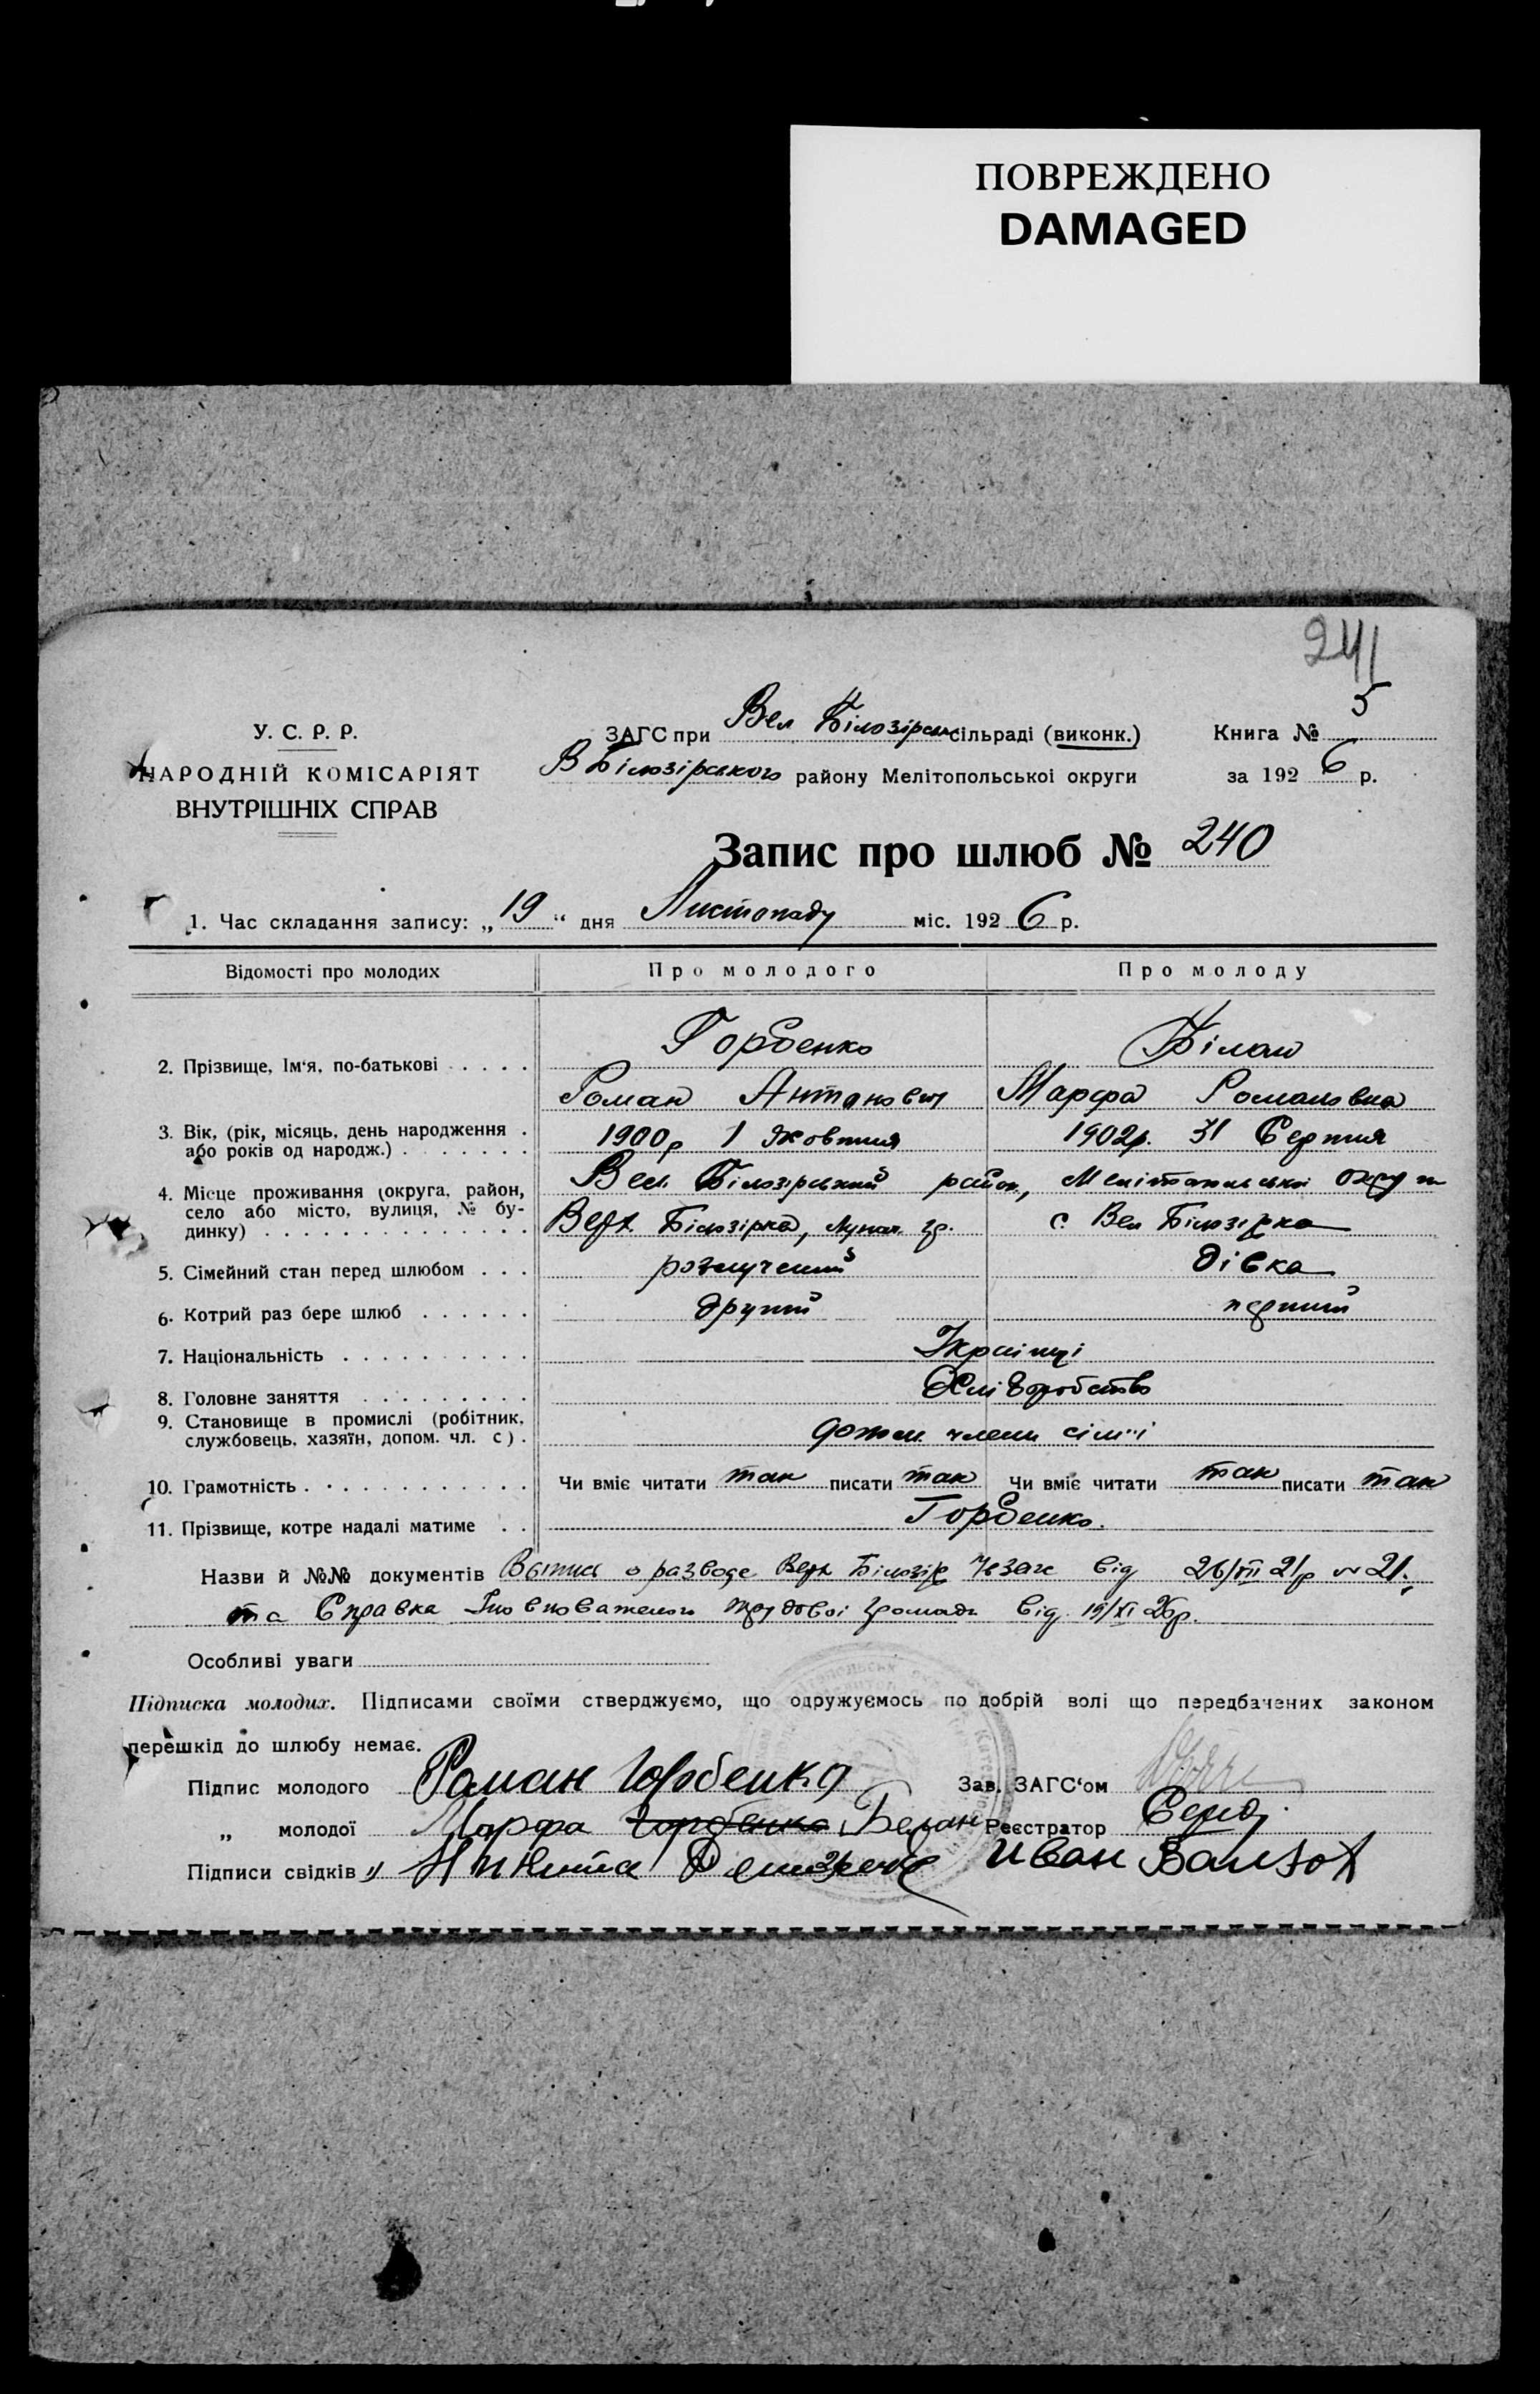 ПОВРЕЖДЕНО
DAMAGED
241
У. С. Р. Р.
НАРОДНІЙ КОМІСАРІЯТ
ВНУТРІШНІХ СПРАВ
ЗАГС при Вел Білозірськ сільраді (виконк.)
В Білозірського району Мелітопольської округи
Книга № 5
за 1926 р.
Запис про шлюб № 240
1. Час складання запису: „19“ дня Листопаду міс. 1926 р.
Відомості про молодих
Про молодого
Про молоду
2. Прізвище, Ім‘я, по-батькові
Горбенко
Білан
Роман Антонович
Марфа Романовна
3. Вік, (рік, місяць, день народження
або років од народж.)
1900р 1 Жовтня
1902р. 31 Серпня
4. Місце проживання (округа, район,
село або місто, вулиця, № бу-
динку)
Вел Білозірський район, Мелітопольської округи
Верх Білозірка,
с. Вел Білозірка
5. Сімейний стан перед шлюбом
розлучений
дівка
6. Котрий раз бере шлюб
другий
перший
7. Національність
Українці
8. Головне заняття
Хліборобство
9. Становище в промислі (робітник,
службовець, хазяїн, допом. чл. с).
допом. члени сім'ї
10. Грамотність
Чи вміє читати так писати так
Чи вміє читати так писати так
11. Прізвище, котре надалі матиме
Горбенко.
Назви й №№ документів Выпись о разводе Верх Білозір від 26/VII 21р № 21,
та Справка Уповноваженого громади від 19/XI 26р.
Особливі уваги
Підписка молодих. Підписами своїми стверджуємо, що одружуємось по добрій волі що передбачених законом
перешкід до шлюбу немає.
Підпис молодого Роман Горбенко
Зав. ЗАГС‘ом
„ молодої Марфа Горбенко Белан
Реєстратор
Підписи свідків Никита
Иван